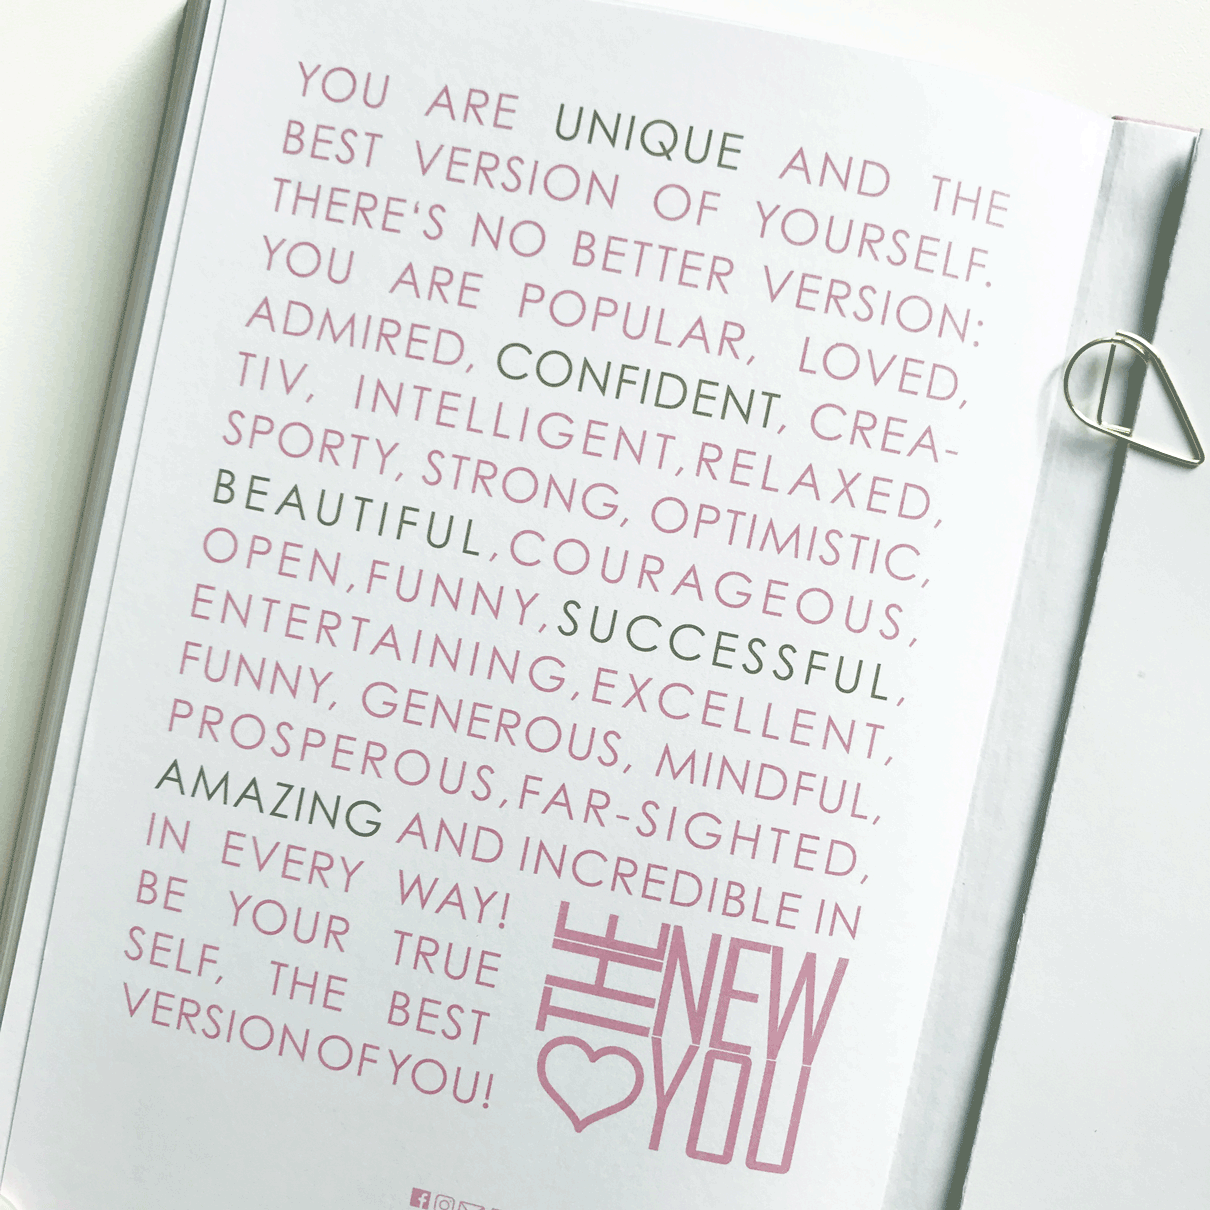 YOU ARE UNIQUE AND THE
BEST VERSION OF YOURSELF.
THERE‘S NO BETTER VERSION:
YOU ARE POPULAR, LOVED,
ADMIRED, CONFIDENT, CREA-
TIV, INTELLIGENT, RELAXED,
SPORTY, STRONG, OPTIMISTIC,
BEAUTIFUL, COURAGEOUS,
OPEN, FUNNY, SUCCESSFUL,
ENTERTAINING, EXCELLENT,
FUNNY, GENEROUS, MINDFUL,
PROSPEROUS, FAR-SIGHTED,
AMAZING AND INCREDIBLE IN
IN EVERY WAY!
BE YOUR TRUE
SELF, THE BEST
VERSION OF YOU!
THE NEW
YOU